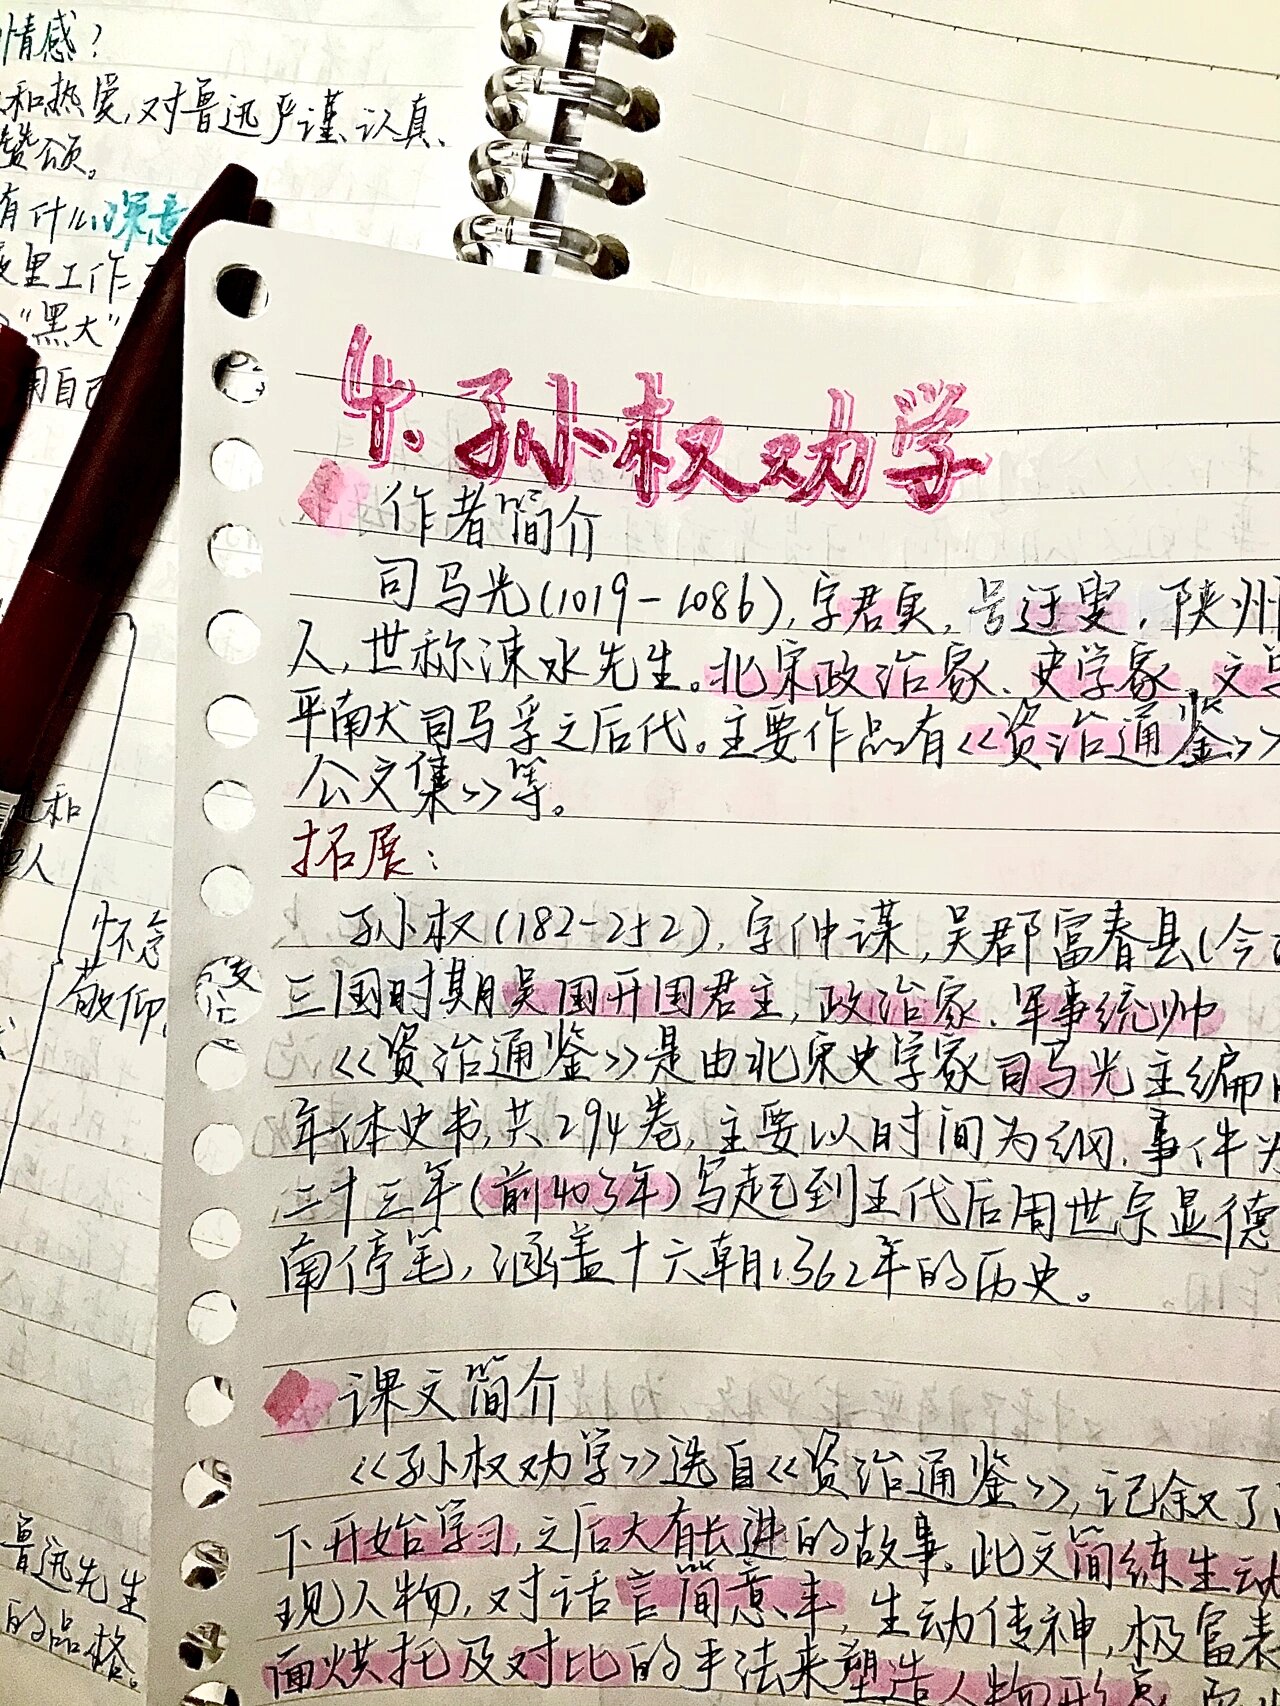 情感?
和热爱,对鲁迅严谨、认真、
赞颂。
有什么深意
夜里工作
"黑大"
用自己
和
怀念
敬仰
鲁迅先生
的品格。
4.孙权劝学
作者简介
司马光(1019-1086),字君实,号迂叟,陕州
人,世称涑水先生。北宋政治家、史学家、文学
平南犬司马孚之后代。主要作品有《资治通鉴》
公文集》等。
拓展:
孙权(182-252),字仲谋,吴郡富春县(今
三国时期吴国开国君主,政治家、军事统帅
《资治通鉴》是由北宋史学家司马光主编
年体史书,共294卷,主要以时间为纲,事件为
二十三年(前403年)写起到五代后周世宗显德
南停笔,涵盖十六朝1362年的历史。
课文简介
《孙权劝学》选自《资治通鉴》,记叙了
下开始学习,之后大有长进的故事。此文简练生动
现人物,对话言简意丰,生动传神,极富表
面烘托及对比的手法来塑造人物形